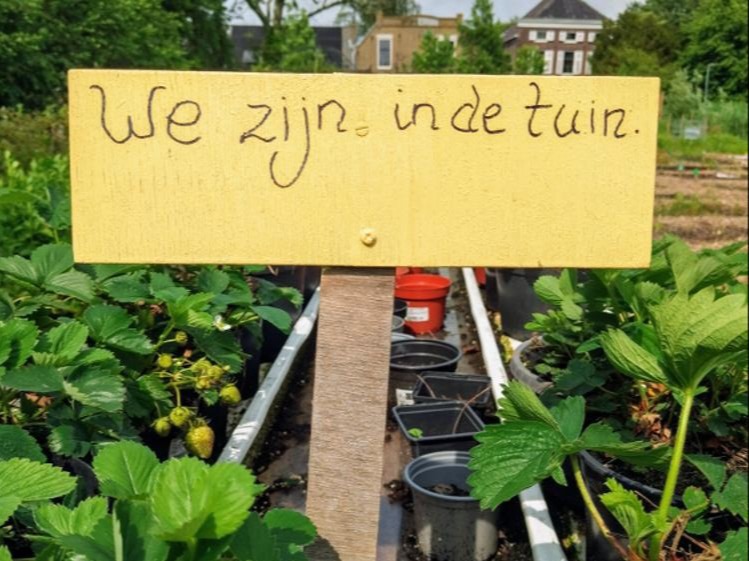 We zijn in de tuin.